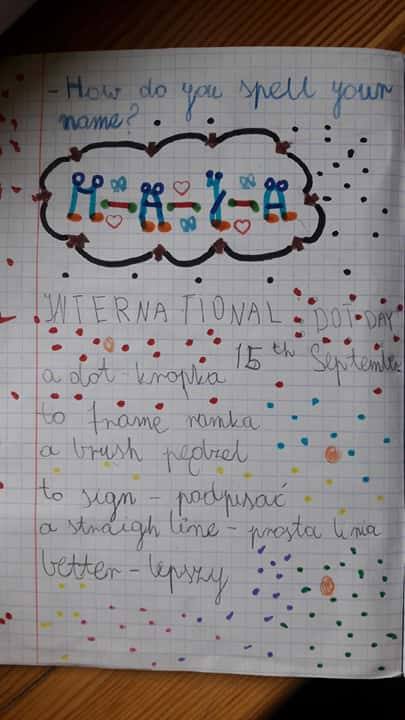 - How do you spell your
name?
INTERNATIONAL DOT DAY
15th September
a dot - kropka
to frame ramka
a brush pędzel
to sign - podpisać
a straigh line - prosta linia
better - lepszy